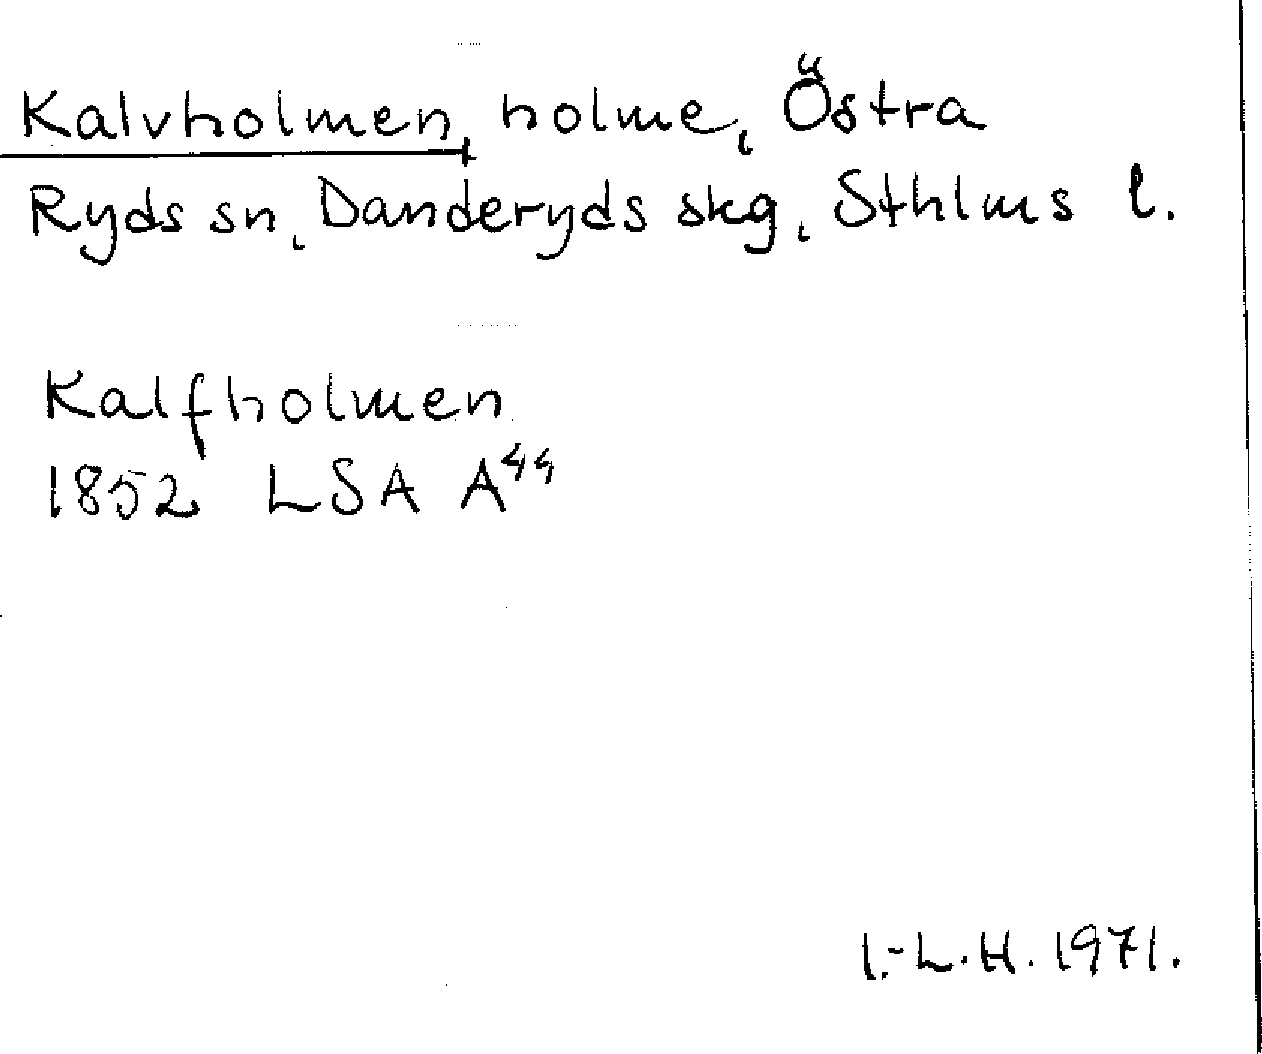 Kalvholmen, holme, Östra
Ryds sn, Danderyds skg, Sthlms l.
Kalfholmen
1852 LSA A⁴⁴
I.-L.H. 1971.